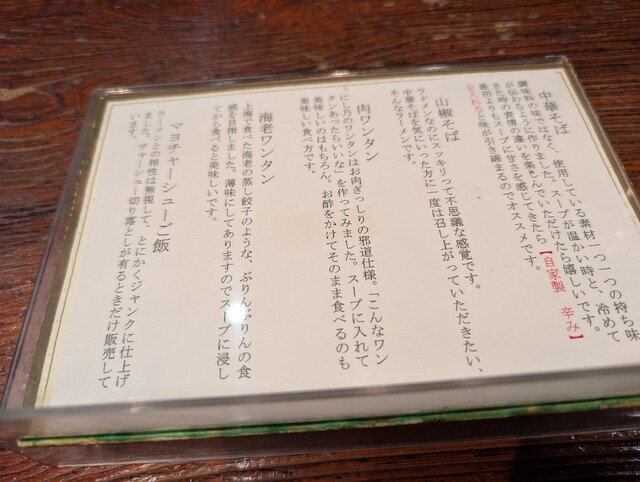 中華そば
調味料の味ではなく、使用している素材一つ一つの持ち味
が伝わるように作りました。スープが温かい時と、冷めて
きた時の表情の違いを楽しんでいただけたら嬉しいです。
最初よりもスープに甘さを感じてきたら【自家製 辛み】
を入れると味が引き締まるのでオススメです。
山椒そば
ラーメンなのにスッキリって不思議な感覚です。
中華そばを気にいった方に一度は召し上がっていただきたい、
そんなラーメンです。
肉ワンタン
にし乃のワンタンはお肉ぎっしりの邪道仕様。「こんなワン
タンあったらいいな」を作ってみました。スープに入れて
美味しいのはもちろん。お酢をかけてそのまま食べるのも
美味しい食べ方です。
海老ワンタン
上海で食べた海老の蒸し餃子のような、ぷりんぷりんの食
感を目指しました。薄味にしてありますのでスープに浸し
てから食べると美味しいです。
マヨチャーシューご飯
ラーメンとの相性は無視して、とにかくジャンクに仕上げ
ました。チャーシュー切り落としが有るときだけ販売して
います。